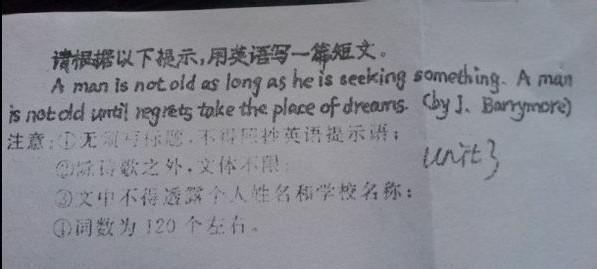 请根据以下提示,用英语写一篇短文。
A man is not old as long as he is seeking something. A man
is not old until regrets take the place of dreams. (by J. Barrymore)
注意:①无须写标题,不得照抄英语提示语;
②除诗歌之外,文体不限;
③文中不得透露个人姓名和学校名称;
④词数为120个左右。
Unit 3